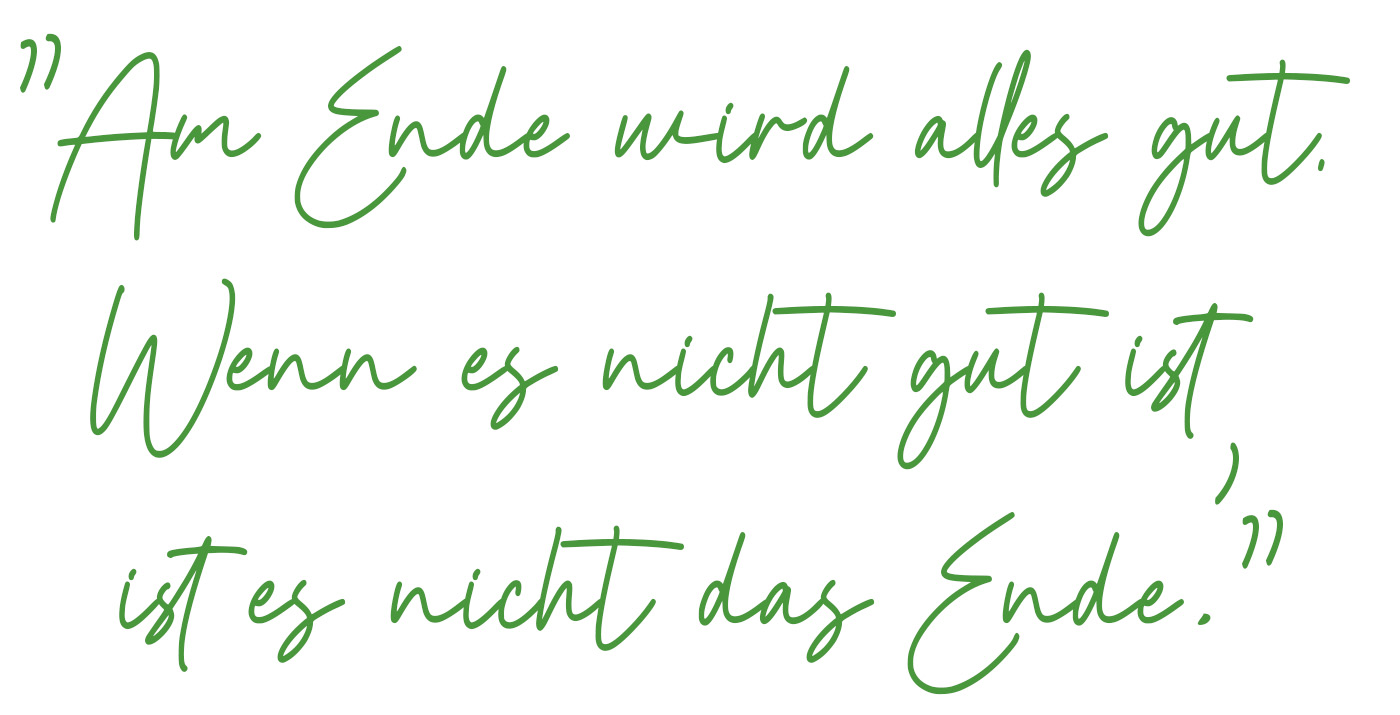 ”Am Ende wird alles gut.
Wenn es nicht gut ist,
ist es nicht das Ende.”